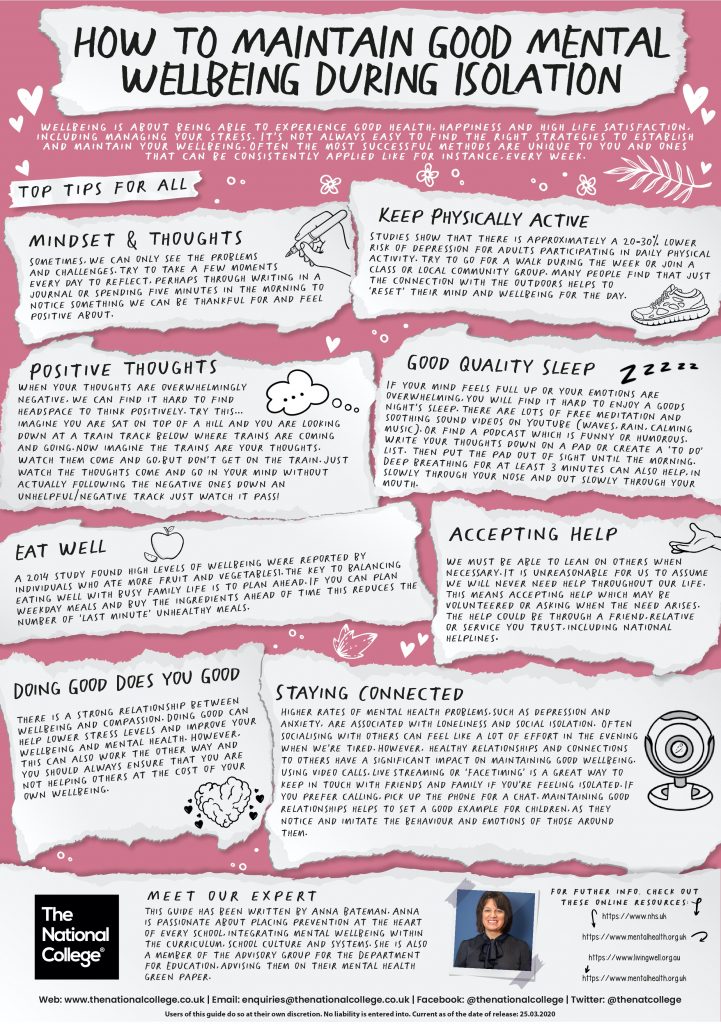 HOW TO MAINTAIN GOOD MENTAL
WELLBEING DURING ISOLATION
WELLBEING IS ABOUT BEING ABLE TO EXPERIENCE GOOD HEALTH, HAPPINESS AND HIGH LIFE SATISFACTION,
INCLUDING MANAGING YOUR STRESS. IT'S NOT ALWAYS EASY TO FIND THE RIGHT STRATEGIES TO ESTABLISH
AND MAINTAIN YOUR WELLBEING. OFTEN THE MOST SUCCESSFUL METHODS ARE UNIQUE TO YOU AND ONES
THAT CAN BE CONSISTENTLY APPLIED LIKE FOR INSTANCE, EVERY WEEK.
TOP TIPS FOR ALL
MINDSET & THOUGHTS
SOMETIMES, WE CAN ONLY SEE THE PROBLEMS
AND CHALLENGES. TRY TO TAKE A FEW MOMENTS
EVERY DAY TO REFLECT, PERHAPS THROUGH WRITING IN A
JOURNAL OR SPENDING FIVE MINUTES IN THE MORNING TO
NOTICE SOMETHING WE CAN BE THANKFUL FOR AND FEEL
POSITIVE ABOUT.
KEEP PHYSICALLY ACTIVE
STUDIES SHOW THAT THERE IS APPROXIMATELY A 20-30% LOWER
RISK OF DEPRESSION FOR ADULTS PARTICIPATING IN DAILY PHYSICAL
ACTIVITY. TRY TO GO FOR A WALK DURING THE WEEK OR JOIN A
CLASS OR LOCAL COMMUNITY GROUP. MANY PEOPLE FIND THAT JUST
THE CONNECTION WITH THE OUTDOORS HELPS TO
'RESET' THEIR MIND AND WELLBEING FOR THE DAY.
POSITIVE THOUGHTS
WHEN YOUR THOUGHTS ARE OVERWHELMINGLY
NEGATIVE, WE CAN FIND IT HARD TO FIND
HEADSPACE TO THINK POSITIVELY. TRY THIS...
IMAGINE YOU ARE SAT ON TOP OF A HILL AND YOU ARE LOOKING
DOWN AT A TRAIN TRACK BELOW WHERE TRAINS ARE COMING
AND GOING. NOW IMAGINE THE TRAINS ARE YOUR THOUGHTS.
WATCH THEM COME AND GO, BUT DON'T GET ON THE TRAIN. JUST
WATCH THE THOUGHTS COME AND GO IN YOUR MIND WITHOUT
ACTUALLY FOLLOWING THE NEGATIVE ONES DOWN AN
UNHELPFUL/NEGATIVE TRACK JUST WATCH IT PASS!
GOOD QUALITY SLEEP
Z Z Z Z Z
IF YOUR MIND FEELS FULL UP OR YOUR EMOTIONS ARE
OVERWHELMING, YOU WILL FIND IT HARD TO ENJOY A GOODS
NIGHT'S SLEEP. THERE ARE LOTS OF FREE MEDITATION AND
SOOTHING SOUND VIDEOS ON YOUTUBE (WAVES, RAIN, CALMING
MUSIC). OR FIND A PODCAST WHICH IS FUNNY OR HUMOROUS.
WRITE YOUR THOUGHTS DOWN ON A PAD OR CREATE A 'TO DO'
LIST. THEN PUT THE PAD OUT OF SIGHT UNTIL THE MORNING.
DEEP BREATHING FOR AT LEAST 3 MINUTES CAN ALSO HELP, IN
SLOWLY THROUGH YOUR NOSE AND OUT SLOWLY THROUGH YOUR
MOUTH.
EAT WELL
A 2014 STUDY FOUND HIGH LEVELS OF WELLBEING WERE REPORTED BY
INDIVIDUALS WHO ATE MORE FRUIT AND VEGETABLES1. THE KEY TO BALANCING
EATING WELL WITH BUSY FAMILY LIFE IS TO PLAN AHEAD. IF YOU CAN PLAN
WEEKDAY MEALS AND BUY THE INGREDIENTS AHEAD OF TIME THIS REDUCES THE
NUMBER OF 'LAST MINUTE' UNHEALTHY MEALS.
ACCEPTING HELP
WE MUST BE ABLE TO LEAN ON OTHERS WHEN
NECESSARY. IT IS UNREASONABLE FOR US TO ASSUME
WE WILL NEVER NEED HELP THROUGHOUT OUR LIFE.
THIS MEANS ACCEPTING HELP WHICH MAY BE
VOLUNTEERED OR ASKING WHEN THE NEED ARISES.
THE HELP COULD BE THROUGH A FRIEND, RELATIVE
OR SERVICE YOU TRUST, INCLUDING NATIONAL
HELPLINES.
DOING GOOD DOES YOU GOOD
THERE IS A STRONG RELATIONSHIP BETWEEN
WELLBEING AND COMPASSION. DOING GOOD CAN
HELP LOWER STRESS LEVELS AND IMPROVE YOUR
WELLBEING AND MENTAL HEALTH. HOWEVER,
THIS CAN ALSO WORK THE OTHER WAY AND
YOU SHOULD ALWAYS ENSURE THAT YOU ARE
NOT HELPING OTHERS AT THE COST OF YOUR
OWN WELLBEING.
STAYING CONNECTED
HIGHER RATES OF MENTAL HEALTH PROBLEMS, SUCH AS DEPRESSION AND
ANXIETY, ARE ASSOCIATED WITH LONELINESS AND SOCIAL ISOLATION. OFTEN
SOCIALISING WITH OTHERS CAN FEEL LIKE A LOT OF EFFORT IN THE EVENING
WHEN WE'RE TIRED. HOWEVER, HEALTHY RELATIONSHIPS AND CONNECTIONS
TO OTHERS HAVE A SIGNIFICANT IMPACT ON MAINTAINING GOOD WELLBEING.
USING VIDEO CALLS, LIVE STREAMING OR 'FACETIMING' IS A GREAT WAY TO
KEEP IN TOUCH WITH FRIENDS AND FAMILY IF YOU'RE FEELING ISOLATED. IF
YOU PREFER CALLING, PICK UP THE PHONE FOR A CHAT. MAINTAINING GOOD
RELATIONSHIPS HELPS TO SET A GOOD EXAMPLE FOR CHILDREN, AS THEY
NOTICE AND IMITATE THE BEHAVIOUR AND EMOTIONS OF THOSE AROUND
THEM.
The
National
College®
MEET OUR EXPERT
THIS GUIDE HAS BEEN WRITTEN BY ANNA BATEMAN. ANNA
IS PASSIONATE ABOUT PLACING PREVENTION AT THE HEART
OF EVERY SCHOOL, INTEGRATING MENTAL WELLBEING WITHIN
THE CURRICULUM, SCHOOL CULTURE AND SYSTEMS. SHE IS ALSO
A MEMBER OF THE ADVISORY GROUP FOR THE DEPARTMENT
FOR EDUCATION, ADVISING THEM ON THEIR MENTAL HEALTH
GREEN PAPER.
FOR FUTHER INFO, CHECK OUT
THESE ONLINE RESOURCES:
https://www.nhs.uk
https://www.mentalhealth.org.uk
https://www.livingwell.org.au
https://www.mentalhealth.org.uk
Web: www.thenationalcollege.co.uk | Email: enquiries@thenationalcollege.co.uk | Facebook: @thenationalcollege | Twitter: @thenatcollege
Users of this guide do so at their own discretion. No liability is entered into. Current as of the date of release: 25.03.2020